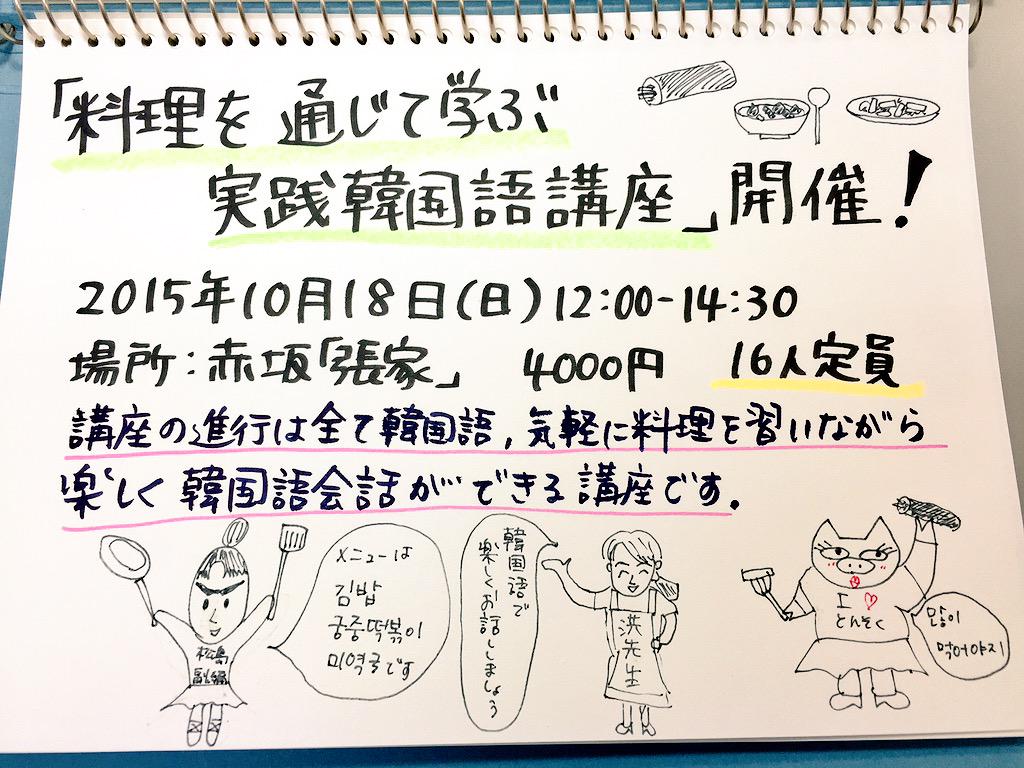 「料理を通じて学ぶ
実践韓国語講座」開催!
2015年10月18日(日)12:00-14:30
場所:赤坂「張家」 4000円 16人定員
講座の進行は全て韓国語,気軽に料理を習いながら
楽しく韓国語会話ができる講座です.
メニューは
김밥
궁중떡볶이
미역국です
松嶋
副編
韓国語で
楽しくお話ししましょう
洪先生
I ♡
とんそく
많이
먹어야지